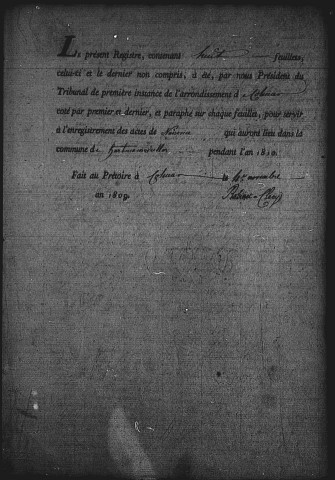 Le présent Registre, contenant huit feuillets,
celui-ci et le dernier non compris, a été, par nous Président du
Tribunal de première instance de l'arrondissement d Colmar
coté par premier et dernier, et paraphé sur chaque feuillet, pour servir
à l'enregistrement des actes de qui auront lieu dans la
commune d pendant l'an 1810.
Fait au Prétoire à Colmar le novembre
an 1809.